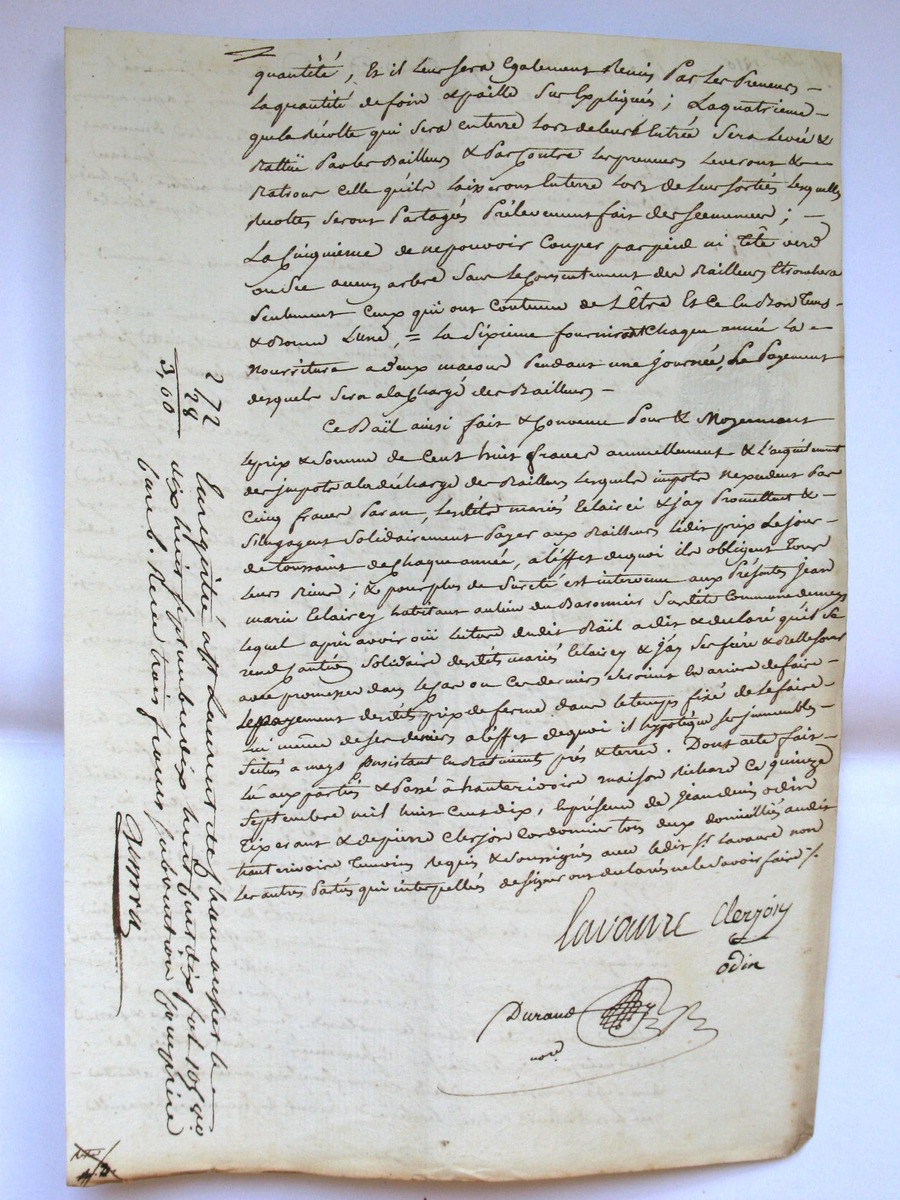 quantité, Et il leur sera Egalement Remis Par les Preneurs -
La quantité de foin & paille Sur Expliqués ; La quatrieme -
que la Récolte qui Sera en terre Lors de leur Entrée Sera Levée &
Battüe Par les Bailleurs & Par Contre Les preneurs Leveront & -
Batront Celle qu'ils Laisseront En terre Lors de Leur Sortie, Lesquelles
Récoltes Seront Partagées Prélevement fait des Semences ; -
La Cinquieme de ne pouvoir Couper par pied ni Tête verd
ou Sec aucun arbre Sans Le Consentement des Bailleurs Etronchera
Seulement Ceux qui ont Coutume de L'être Et Ce En Bon Tems -
& Bonne Lune, = La Sixieme fourniront Chaque année La -
Nourriture a deux maçons Pendant une journée, Le Payement
desquels Sera a la Charge des Bailleurs -
Ce Bail ainsi fait & Convenu Pour & Moyennant
Le prix & Somme de Cent huit francs annuellement & L'aquitement
des impots a la décharge des Bailleurs Lesquels impots N'exedent Par
Cinq francs Par an, Lesdits mariés Clairet & jay Promettent & -
S'Engagent Solidairement Payer aux Bailleurs Ledit prix Le jour -
de toussaint de Chaque année, a l'éffet de quoi ils obligent Tous
Leurs Biens ; & pour plus de Sureté est intervenu aux Présentes Jean
marie Clairey habitant au lieu du Baronnier Susdite Commune de mays
Lequel après avoir oüi Lecture dudit Bail a dit & déclaré qu'il Se
rend Caution Solidaire desdits mariés Clairey & Jay Ses frére & Belle Soeur
avec promesse dans Le Cas ou Ces derniers Seroient En arriere de faire -
Le payement desdits prix de ferme dans le temps fixé de Le faire -
lui même de Ses deniers a l'effet de quoi il hypotéque Ses immeubles -
Situés a mays Consistant En Batiments prés & terres. Dont acte fait -
Lû aux parties & Passé à hauterivoire maison Richard Ce quinze
Septembre mil huit Cent dix, En présence de Jean denis odin
Tixerant & de pierre Clerjon Cordonnier tous deux domiciliés audit
hauterivoire Temoins Requis & Soussignés avec Ledit Sr. Lavaure non
Les autres Parties qui interpellés de Signer ont declarés ne le Savoir faire /.
Lavaure Clerjon
odin
Durand
nore
2 72
28
3,00
Enregistré à St Laurent de Chamousset le
dix huit septembre dix huit cent dix fol. 109 vo.
Case 6. Reçu trois francs subvention Comprise